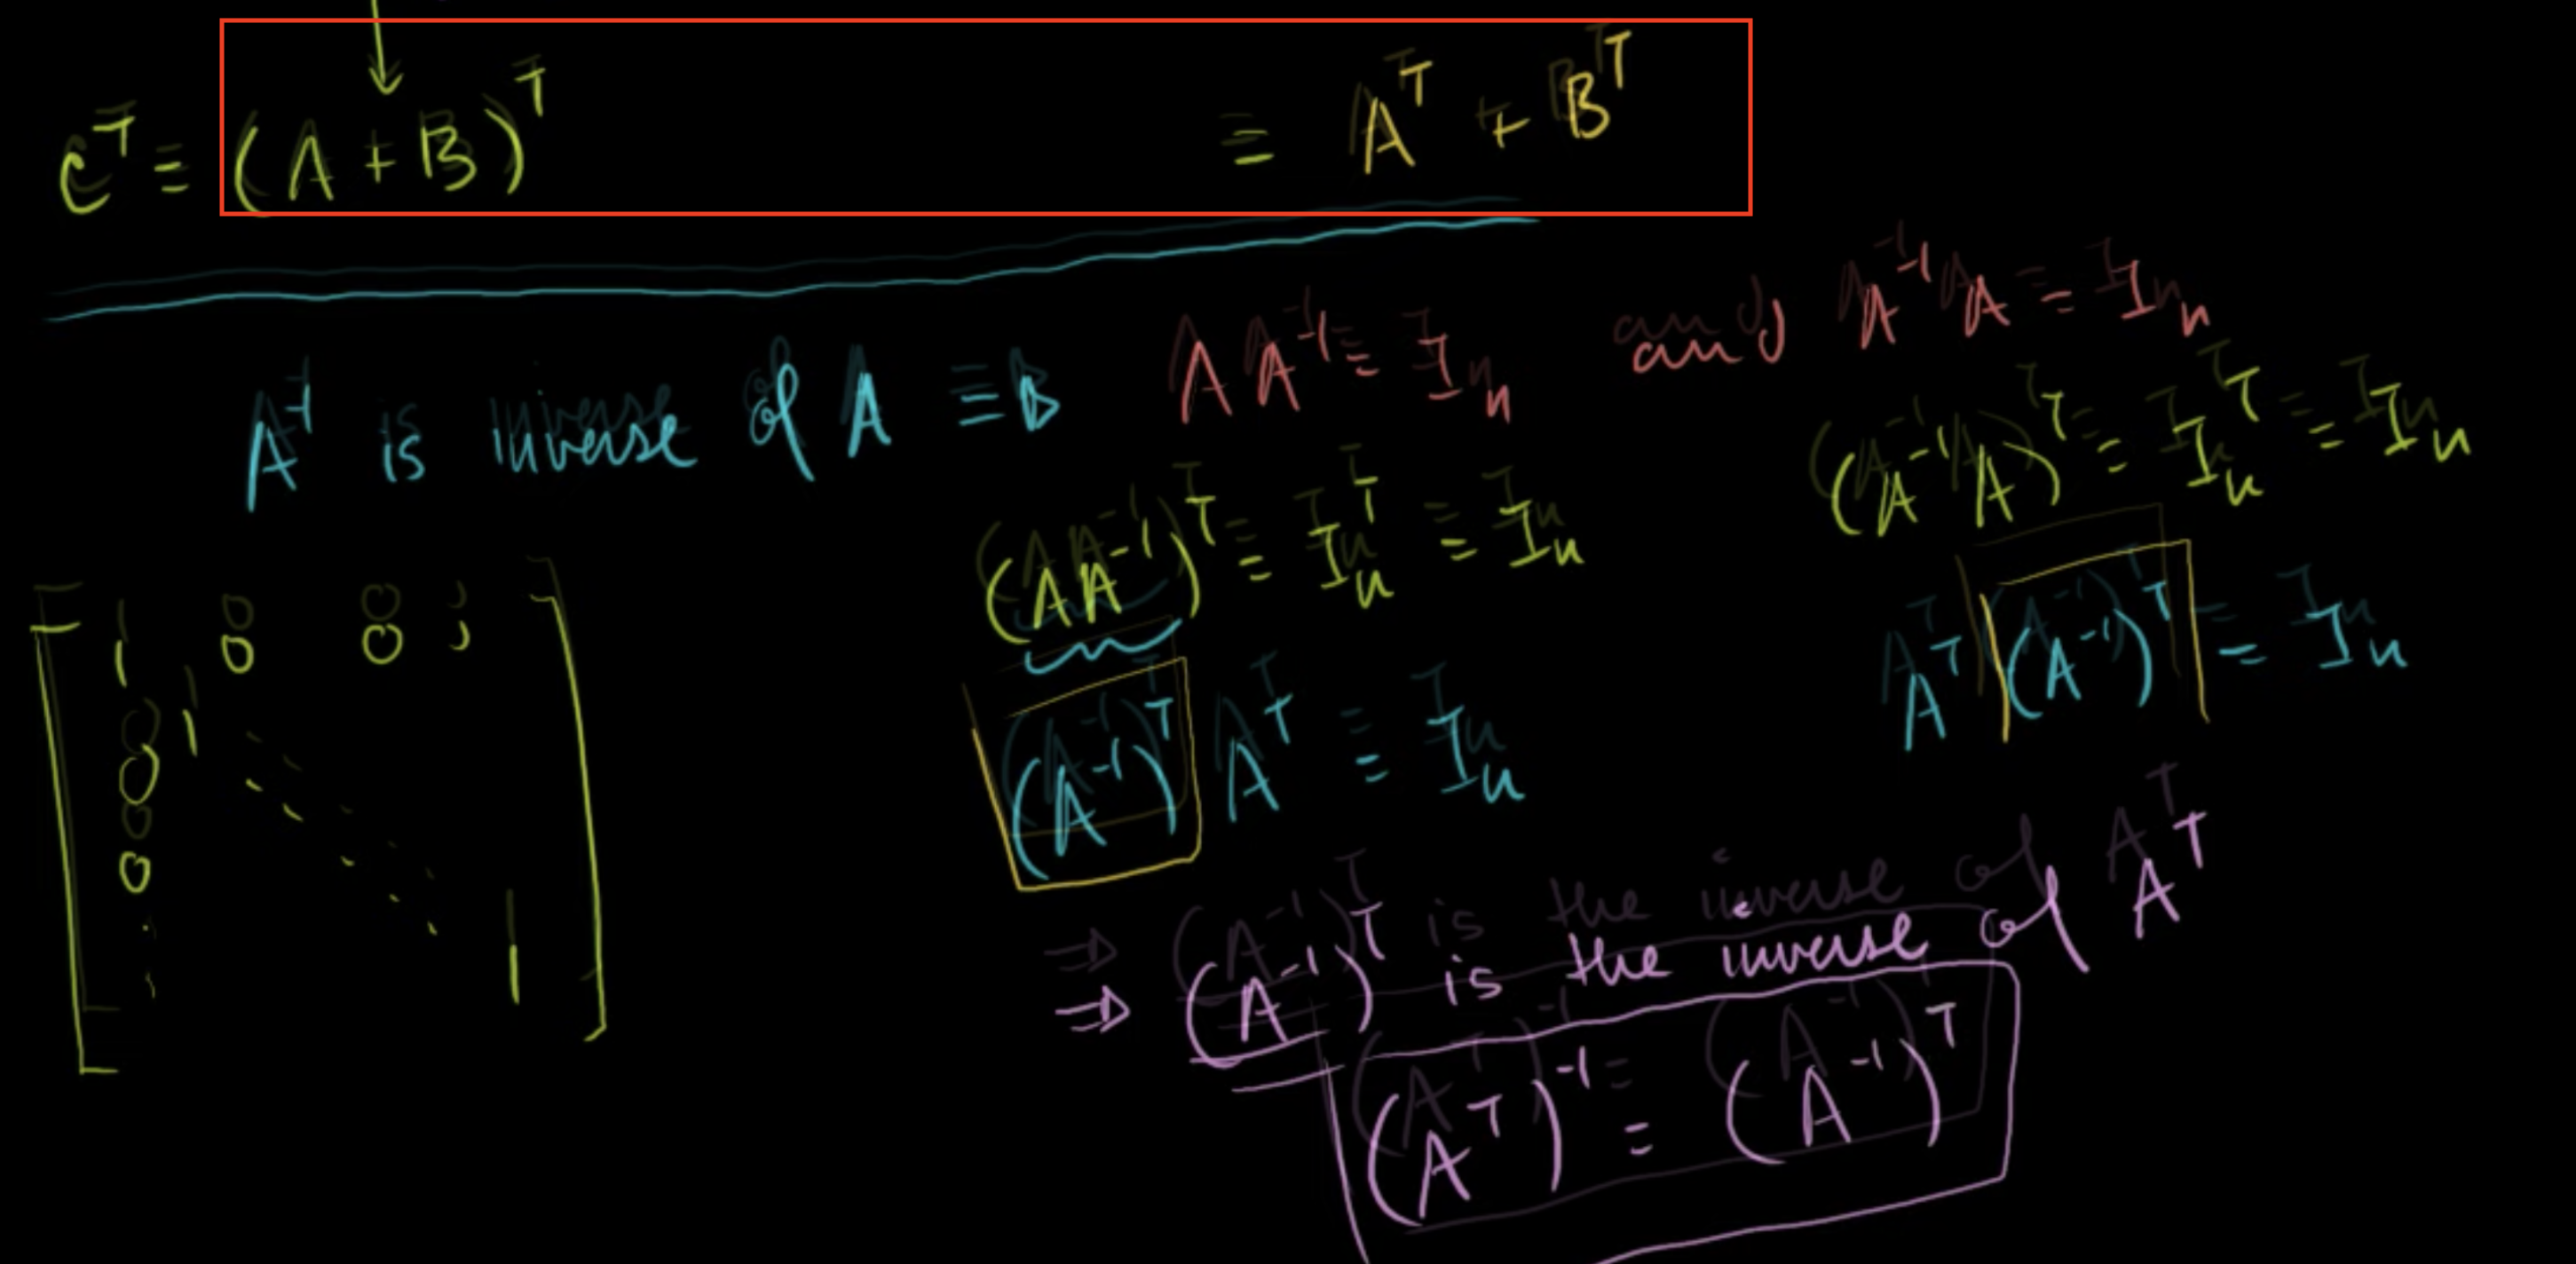 Cᵀ = (A + B)ᵀ = Aᵀ + Bᵀ
A⁻¹ is inverse of A = B
A A⁻¹ = Iₙ and A⁻¹ A = Iₙ
(A A⁻¹)ᵀ = Iₙᵀ = Iₙ
(A⁻¹ A)ᵀ = Iₙᵀ = Iₙ
(A⁻¹)ᵀ Aᵀ = Iₙ
Aᵀ (A⁻¹)ᵀ = Iₙ
⇒ (A⁻¹)ᵀ is the inverse of Aᵀ
(Aᵀ)⁻¹ = (A⁻¹)ᵀ
1 0 0
0 1
0
1